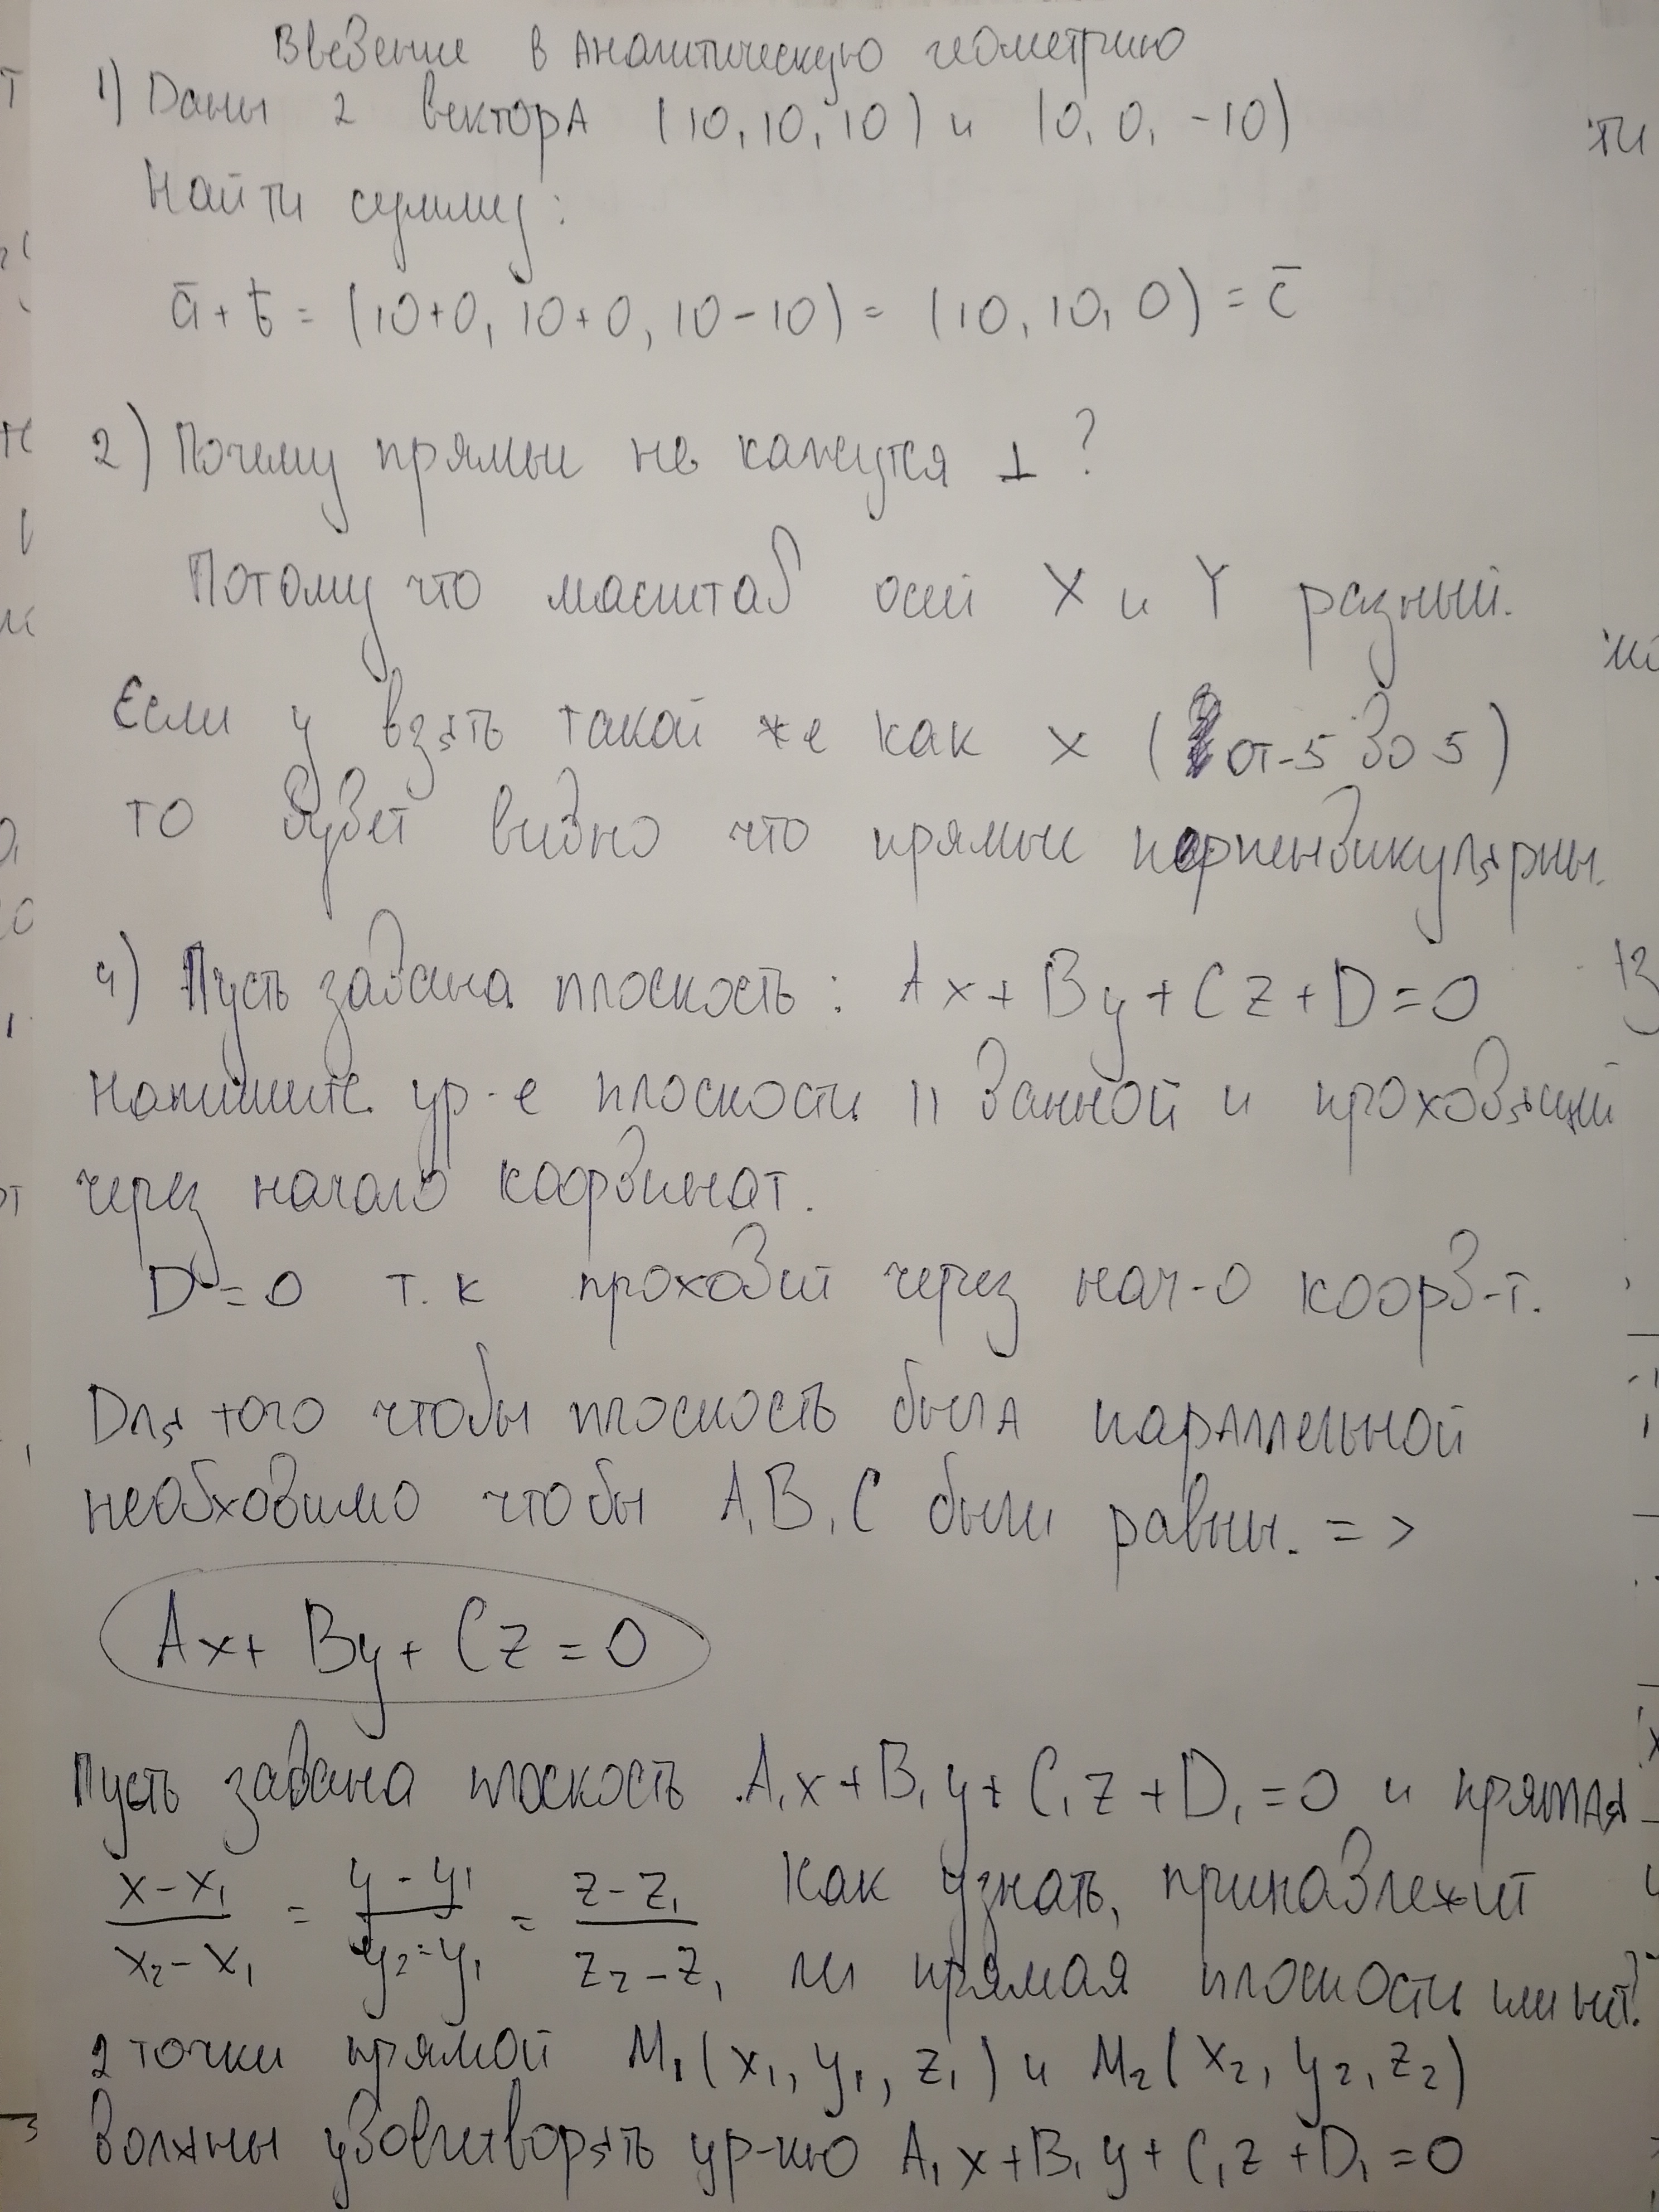 Введение в Аналитическую геометрию
1) Даны 2 вектора (10, 10, 10) и (0, 0, -10)
Найти сумму:
a̅ + b̅ = (10+0, 10+0, 10-10) = (10, 10, 0) = c̅
2) Почему прямые не кажутся ⊥ ?
Потому что масштаб осей X и Y разный.
Если y взять такой же как x ( от -5 до 5)
то будет видно что прямые перпендикулярны.
4) Пусть задана плоскость: Ax + By + Cz + D = 0
Напишите ур-е плоскости || данной и проходящей
через начало координат.
D = 0 т.к проходит через нач-о коорд-т.
Для того чтобы плоскость была параллельной
необходимо чтобы A, B, C были равны. =>
Ax + By + Cz = 0
Пусть задана плоскость A₁x + B₁y + C₁z + D₁ = 0 и прямая
(x - x₁)/(x₂ - x₁) = (y - y₁)/(y₂ - y₁) = (z - z₁)/(z₂ - z₁) Как узнать, принадлежит
ли прямая плоскости или нет?
2 точки прямой M₁(x₁, y₁, z₁) и M₂(x₂, y₂, z₂)
должны удовлетворять ур-ию A₁x + B₁y + C₁z + D₁ = 0